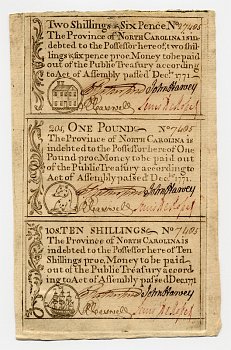 Two Shillings & Six Pence No 7405
The Province of North Carolina is in-
debted to the Possessor hereof, two shil-
lings & six pence proc. Money to be paid
out of the Public Treasury according
to Act of Assembly passed Decr. 1771
John Harvey
20s. ONE POUND No 7405
The Province of North Carolina is
indebted to the Possessor here of One
Pound proc. Money to be paid out
of the Public Treasury according
to Act of Assembly passed Decr. 1771.
John Harvey
10s TEN SHILLINGS No 7405
The Province of North Carolina is
indebted to the Possessor here of Ten
Shillings proc. Money to be paid
out of the Public Treasury accord
ing to Act of Assembly passed Decr. 1771
John Harvey